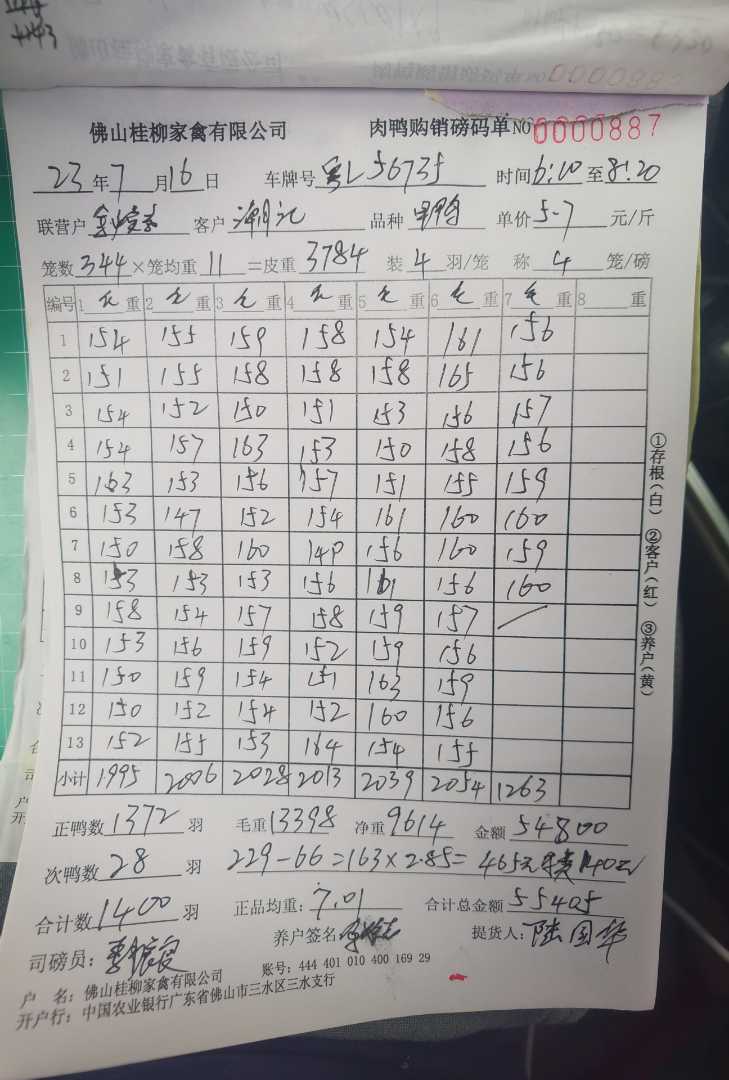 佛山桂柳家禽有限公司 肉鸭购销磅码单 NO 0000887
23年7月16日 车牌号粤L5673 时间6:10至8:20
联营户 客户潮记 品种 单价5.7元/斤
笼数344×笼均重11=皮重3784 装4羽/笼 称4笼/磅
编号 1毛重 2毛重 3毛重 4毛重 5毛重 6毛重 7毛重 8 重
1 154 155 159 158 154 161 156
2 151 155 158 158 158 165 156
3 154 152 150 151 153 156 157
4 154 157 163 153 150 158 156
5 163 153 156 157 151 155 159
6 153 147 152 154 161 160 160
7 150 158 160 149 156 160 159
8 153 153 153 156 161 156 160
9 158 154 157 158 159 157
10 153 156 159 152 159 156
11 150 159 154 151 163 159
12 150 152 154 152 160 156
13 152 155 153 164 154 155
小计 1995 2006 2028 2013 2039 2054 1263
正鸭数1372羽 毛重13398 净重9614 金额54800
次鸭数28羽 229-66=163×2.85=465元 140元
合计数1400羽 正品均重:7.01 合计总金额55405
养户签名: 提货人:陆国华
司磅员:
户 名:佛山桂柳家禽有限公司 账号:444 401 010 400 169 29
开户行:中国农业银行广东省佛山市三水区三水支行
①存根(白) ②客户(红) ③养户(黄)